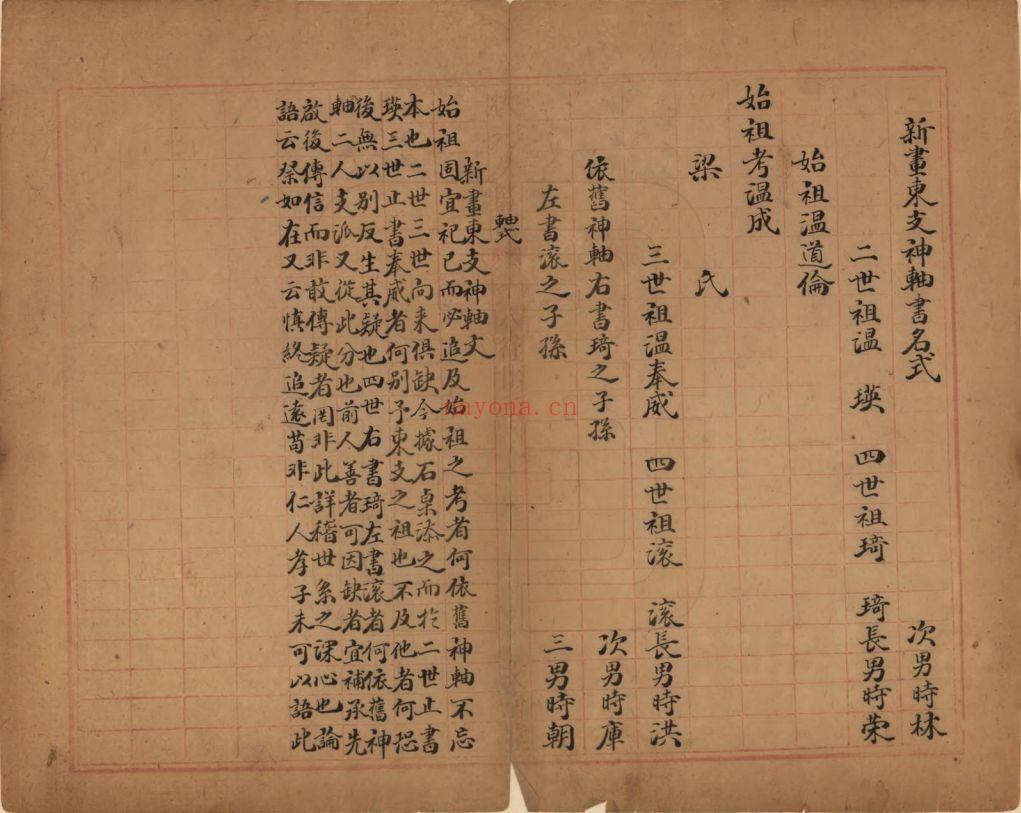 新畫東支神軸書名式
次男時林
二世祖温 瑛 四世祖琦 琦長男時荣
始祖温道倫
始祖考温成
梁 氏
三世祖温奉威 四世祖滚 滚長男時洪
依舊神軸右書琦之子孫 次男時庫
左書滚之子孫 三男時朝
軸式
新畫東支神軸文
始祖固宜祀已而必追及始祖之考者何依舊神軸不忘
本也二世三世向来俱缺今據石桌添之而於二世止書
瑛三世止書奉威者何别予東支之祖也不及他者何恐
後無以别反生其疑也四世右書琦左書滚者何依舊神
軸二人支派又從此分也前人善者可因缺者宜補承先
啟後傳信而非敢傳疑者罔非此詳稽世系之深心也論
語云祭如在又云慎終追遠苟非仁人孝子未可以語此
nayona.cn